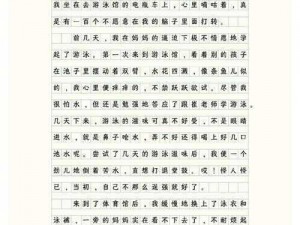 我坐在去游泳馆的电瓶车上，心里嘀咕着，真
是有一百个不愿意在我的脑子里面打转。
前几天，我在妈妈的逼迫下极不情愿地学
起了游泳。第一次来到游泳馆，看着别的孩子
在池子里摆动着双臂，水花四溅，像条鱼儿似
的，我心里便痒痒的，不禁跃跃欲试。尽管我
很怕水，但还是勉强地答应了跟崔老师学游泳。
几天下来，游泳的滋味可真不好受，不是眼睛
进水，就是鼻子呛水，弄不好还得喝上好几口
池水呢。尝试了几天的游泳滋味后，我便一个
劲儿地倒着苦水，直想打退堂鼓。哎！怪人怪
已，当初，自己不那么逞强就好了。
来到了体育馆后，我缓慢地换上了泳衣和
泳裤，一旁的妈妈实在看不下去了，不耐烦起